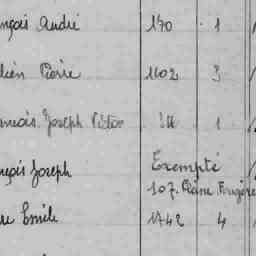 nçois André 190 1
lien Pierre 1102 3
ançois Joseph Victor 1
nçois Joseph Exempté
107.
re Emile 1742 4